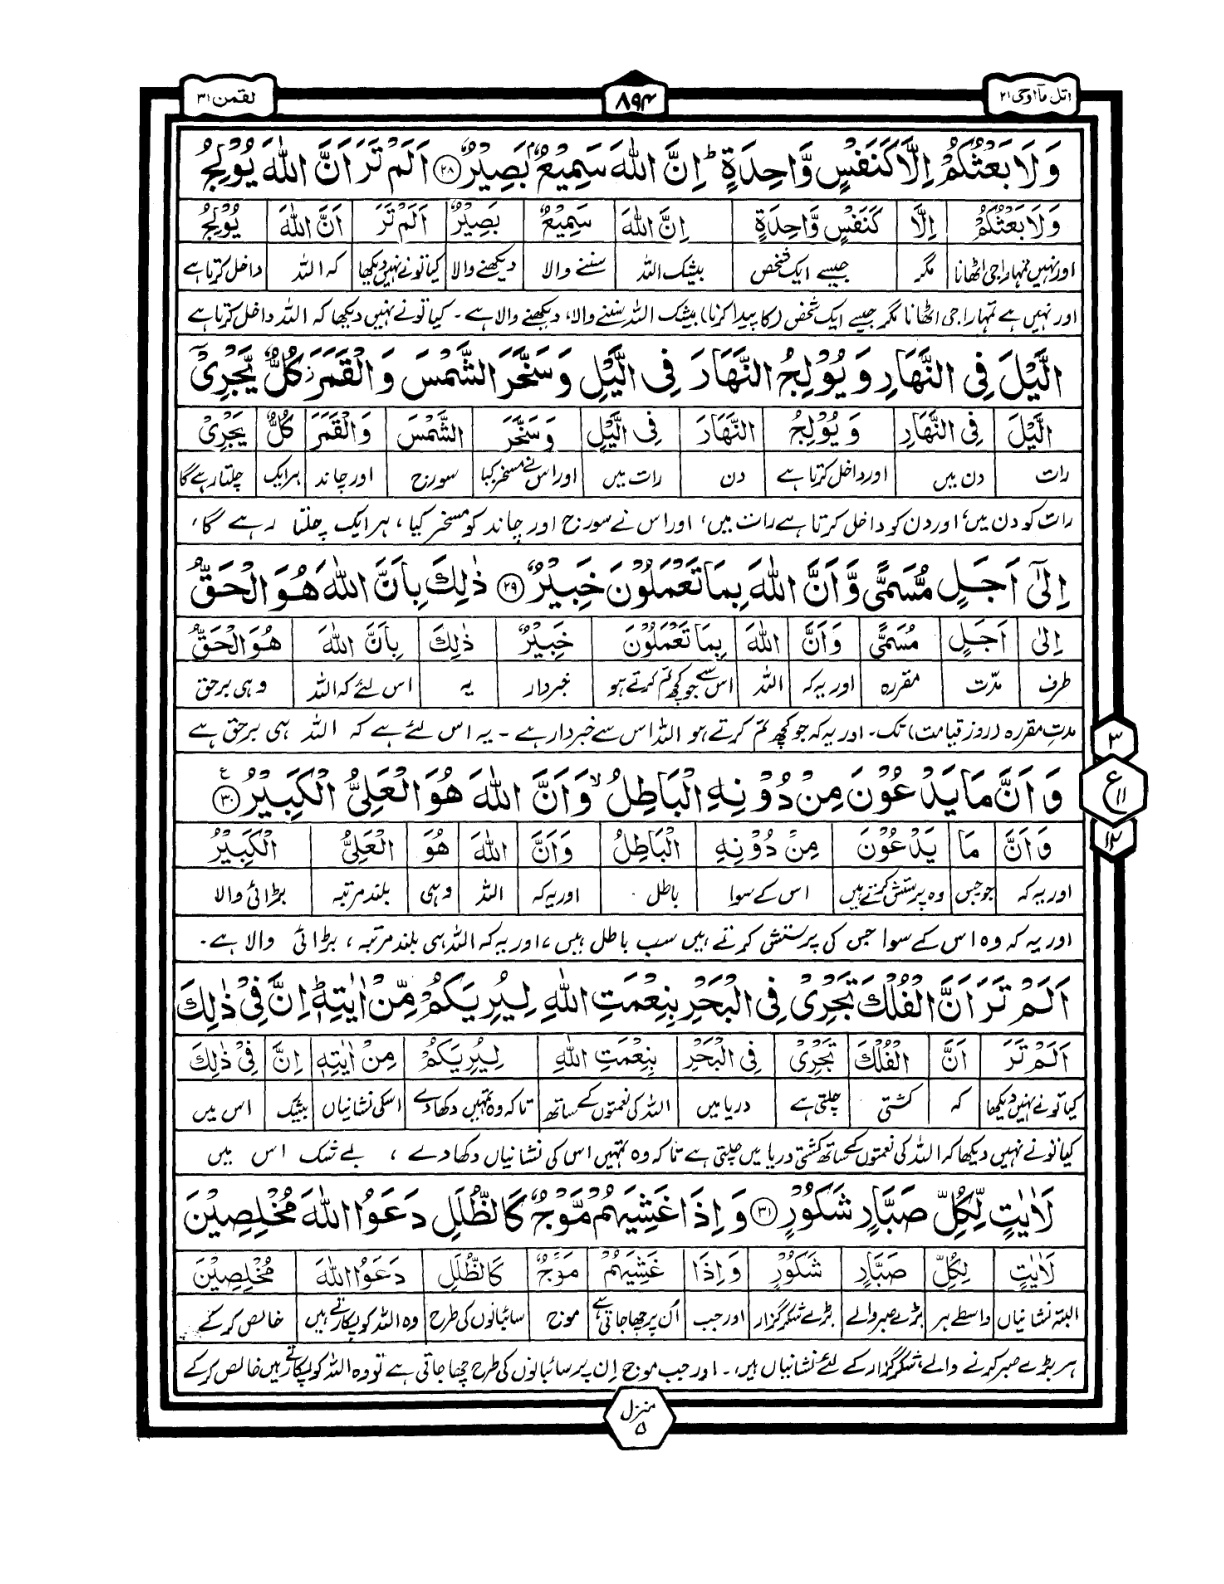 اتل مآ اوحی ۲۱
۸۹۴
لقمٰن ۳۱
وَلَا بَعْثُكُمْ اِلَّا كَنَفْسٍ وَّاحِدَةٍ ؕ اِنَّ اللّٰهَ سَمِيْعٌۢ بَصِيْرٌ ﴿۲۸﴾ اَلَمْ تَرَ اَنَّ اللّٰهَ يُوْلِجُ
وَلَا بَعْثُكُمْ اِلَّا كَنَفْسٍ وَّاحِدَةٍ اِنَّ اللّٰهَ سَمِيْعٌ بَصِيْرٌ اَلَمْ تَرَ اَنَّ اللّٰهَ يُوْلِجُ
اور نہیں تمہارا جی اٹھانا مگر جیسے ایک شخص بیشک اللہ سننے والا دیکھنے والا کیا تونے نہیں دیکھا کہ اللہ داخل کرتا ہے
اور نہیں ہے تمہارا جی اٹھانا مگر جیسے ایک شخص (کا پیدا کرنا) بیشک اللہ سننے والا، دیکھنے والا ہے۔ کیا تونے نہیں دیکھا کہ اللہ داخل کرتا ہے
الَّيْلَ فِی النَّهَارِ وَ يُوْلِجُ النَّهَارَ فِی الَّيْلِ وَ سَخَّرَ الشَّمْسَ وَ الْقَمَرَ ؗ كُلٌّ يَّجْرِیْۤ
الَّيْلَ فِی النَّهَارِ وَ يُوْلِجُ النَّهَارَ فِی الَّيْلِ وَ سَخَّرَ الشَّمْسَ وَالْقَمَرَ كُلٌّ يَجْرِیْ
رات دن میں اور داخل کرتا ہے دن رات میں اور اس نے مسخر کیا سورج اور چاند ہر ایک چلتا رہے گا
رات کو دن میں، اور دن کو داخل کرتا ہے رات میں، اور اس نے سورج اور چاند کو مسخر کیا، ہر ایک چلتا رہے گا،
اِلٰۤی اَجَلٍ مُّسَمًّی وَّ اَنَّ اللّٰهَ بِمَا تَعْمَلُوْنَ خَبِيْرٌ ﴿۲۹﴾ ذٰلِكَ بِاَنَّ اللّٰهَ هُوَ الْحَقُّ
اِلٰی اَجَلٍ مُسَمًّی وَاَنَّ اللّٰهَ بِمَا تَعْمَلُوْنَ خَبِيْرٌ ذٰلِكَ بِاَنَّ اللّٰهَ هُوَ الْحَقُّ
طرف مدّت مقررہ اور یہ کہ اللہ اس سے جو کچھ تم کرتے ہو خبردار یہ اس لئے کہ اللہ وہی برحق
مدتِ مقررہ (روز قیامت) تک۔ اور یہ کہ جو کچھ تم کرتے ہو اللہ اس سے خبردار ہے۔ یہ اس لئے ہے کہ اللہ ہی برحق ہے
۳
ع ۱۱
۱۲
وَ اَنَّ مَا يَدْعُوْنَ مِنْ دُوْنِهِ الْبَاطِلُ ۙ وَ اَنَّ اللّٰهَ هُوَ الْعَلِیُّ الْكَبِيْرُ ﴿۳۰﴾ ع
وَ اَنَّ مَا يَدْعُوْنَ مِنْ دُوْنِهِ الْبَاطِلُ وَاَنَّ اللّٰهَ هُوَ الْعَلِیُّ الْكَبِيْرُ
اور یہ کہ جو جس وہ پرستش کرتے ہیں اس کے سوا باطل اور یہ کہ اللہ وہی بلند مرتبہ بڑائی والا
اور یہ کہ وہ اس کے سوا جس کی پرستش کرتے ہیں سب باطل ہیں، اور یہ کہ اللہ ہی بلند مرتبہ، بڑائی والا ہے۔
اَلَمْ تَرَ اَنَّ الْفُلْكَ تَجْرِیْ فِی الْبَحْرِ بِنِعْمَتِ اللّٰهِ لِيُرِيَكُمْ مِّنْ اٰيٰتِهٖ ؕ اِنَّ فِیْ ذٰلِكَ
اَلَمْ تَرَ اَنَّ الْفُلْكَ تَجْرِیْ فِی الْبَحْرِ بِنِعْمَتِ اللّٰهِ لِيُرِيَكُمْ مِنْ اٰيٰتِهٖ اِنَّ فِیْ ذٰلِكَ
کیا تونے نہیں دیکھا کہ کشتی چلتی ہے دریا میں اللہ کی نعمتوں کے ساتھ تاکہ وہ تمہیں دکھا دے اسکی نشانیاں بیشک اس میں
کیا تونے نہیں دیکھا کہ اللہ کی نعمتوں کے ساتھ کشتی دریا میں چلتی ہے تاکہ وہ تمہیں اس کی نشانیاں دکھا دے، بے شک اس میں
لَاٰيٰتٍ لِّكُلِّ صَبَّارٍ شَكُوْرٍ ﴿۳۱﴾ وَ اِذَا غَشِيَهُمْ مَّوْجٌ كَالظُّلَلِ دَعَوُا اللّٰهَ مُخْلِصِيْنَ
لَاٰيٰتٍ لِكُلِّ صَبَّارٍ شَكُوْرٍ وَ اِذَا غَشِيَهُمْ مَوْجٌ كَالظُّلَلِ دَعَوُا اللّٰهَ مُخْلِصِيْنَ
البتہ نشانیاں واسطے ہر بڑے صبر والے بڑے شکر گزار اور جب اُن پر چھا جاتی ہے موج سائبانوں کی طرح وہ اللہ کو پکارتے ہیں خالص کر کے
ہر بڑے صبر کرنے والے، شکر گزار کے لئے نشانیاں ہیں۔ اور جب موج ان پر سائبانوں کی طرح چھا جاتی ہے تو وہ اللہ کو پکارتے ہیں خالص کر کے
منزل ۵